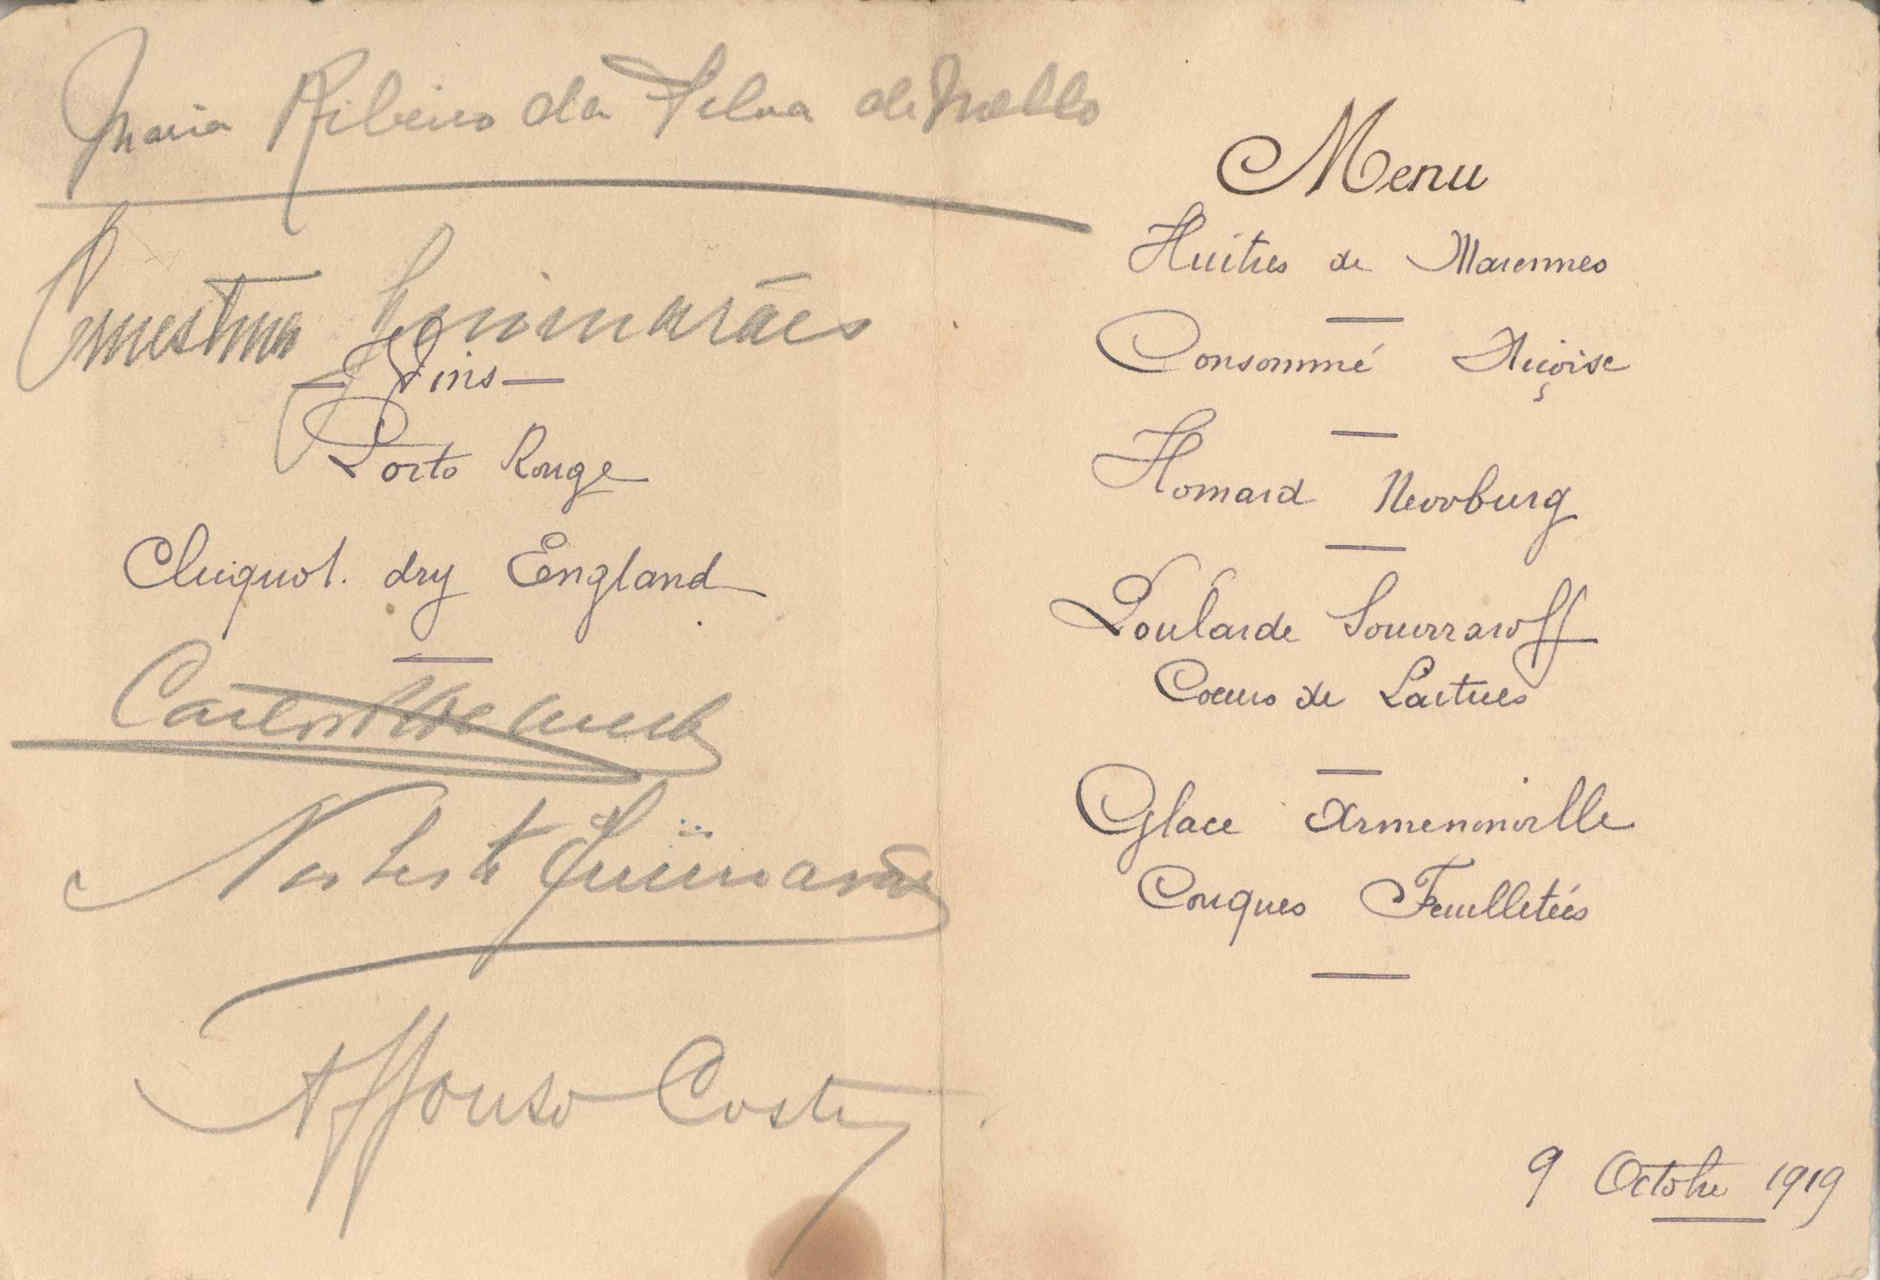 Maria Ribeiro da Silva de Mello
Ernestina Guimarães
— Vins —
Porto Rouge
Clicquot. dry England
Carlos
Norberto Guimarães
Affonso Costa
Menu
Huitres de Marennes
Consommé Niçoise
Homard Newburg
Poularde Souwaroff
Coeurs de Laitues
Glace Armenonville
Couques Feuilletées
9 Octobre 1919